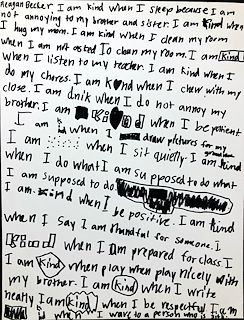 Reagan Becker. I am kind when I sleep because I am
not annoying to my brother and sister. I am kind when
I hug my mom. I am kind when I clean my room
when I am not asked to clean my room. I am kind
when I listen to my teacher. I am kind when I
do my chores. I am kind when I chew with my
close. I am dnik when I do not annoy my
brother. I am kind when I be patient.
I am kind when I draw pictures for my
I am when I sit quietly. I am kind
when I do what I am supposed to do what
I am supposed to do
I am kind when I
be positive. I am kind
when I say I am thankful for someone. I
kind when I am prepared for class. I
I am kind when play when play nicely with
my brother. I am kind when I write
neatly. I am kind when I be respectful. I am
when I wave to a person who is